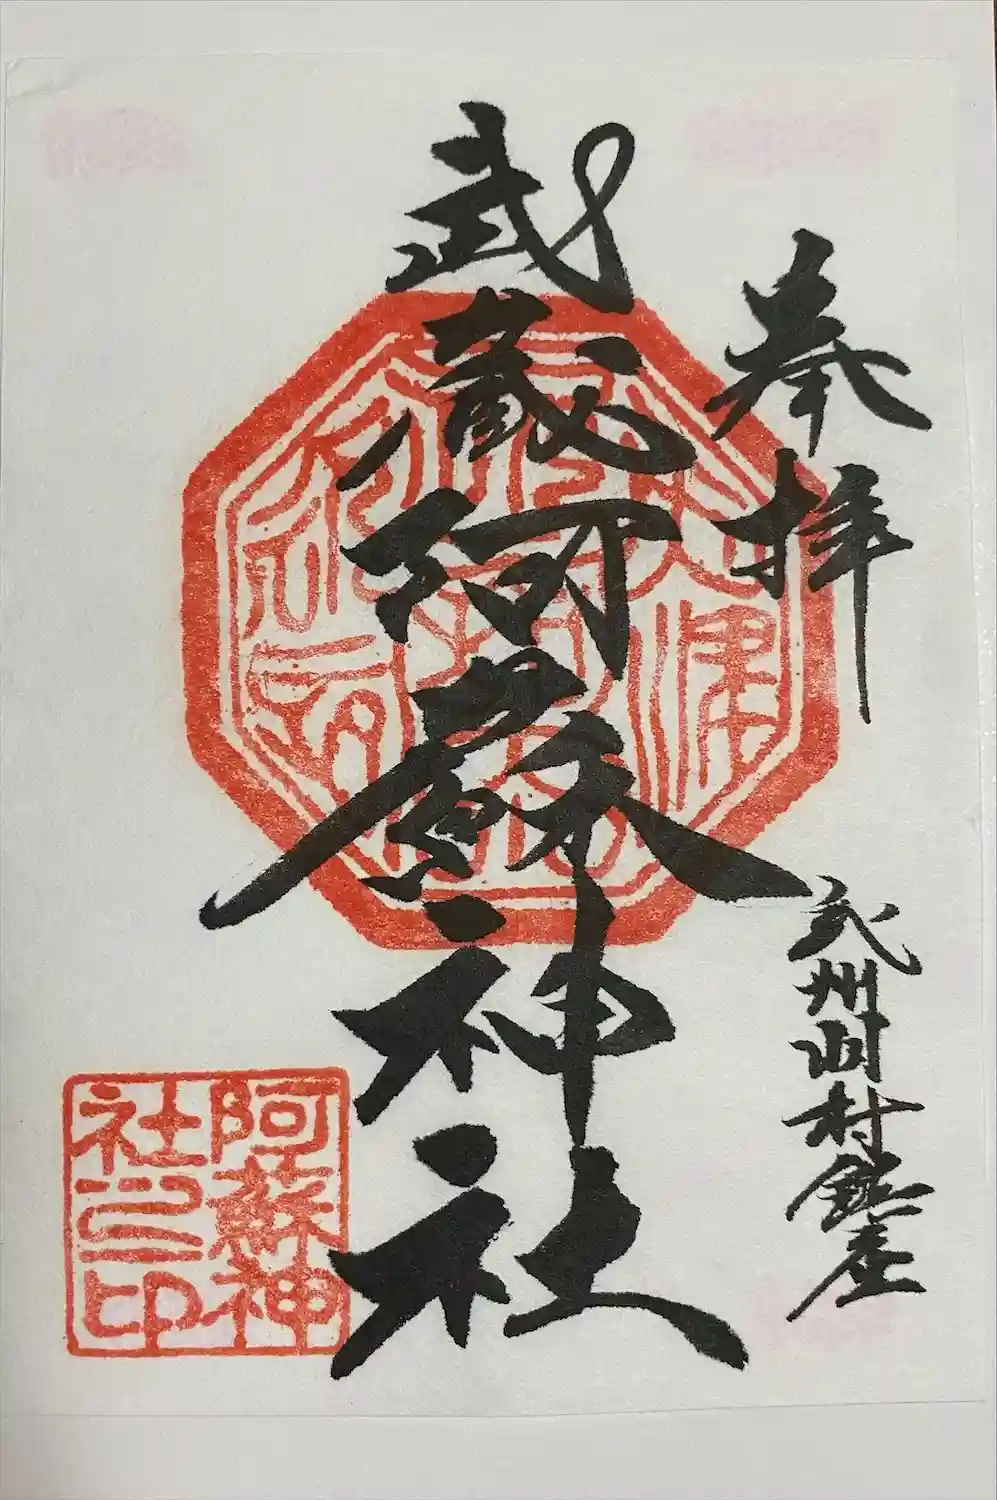 奉拝
武蔵阿蘇神社
武州羽村鎮座
阿蘇神
社之印